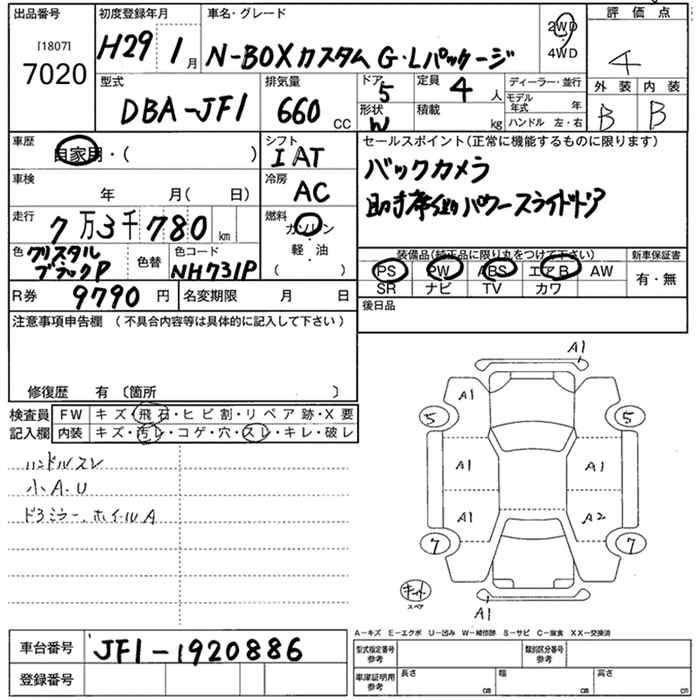 出品番号
[1807]
7020
初度登録年月
H29 1月
車名・グレード
N-BOXカスタム G・Lパッケージ
2WD
4WD
評価点
4
型式
DBA-JF1
排気量
660 CC
ドア
5
定員
4 人
形状
W
積載
kg
ディーラー・並行
モデル年式 年
ハンドル 左・右
外装
B
内装
B
車歴
自家用・( )
シフト
IAT
車検
年 月( 日)
冷房
AC
走行
7万3千780km
燃料
ガソリン
軽・油
( )
色
クリスタル
ブラックP
色替
色コード
NH731P
R券
9790円
名変期限 月 日
セールスポイント(正常に機能するものに限ります)
バックカメラ
助手席側パワースライドドア
装備品(純正品に限り丸をつけて下さい)
PS PW ABS エアB AW
SR ナビ TV カワ
新車保証書
有・無
後日品
注意事項申告欄 (不具合内容等は具体的に記入して下さい)
修復歴 有〔箇所 〕
検査員
記入欄
FW キズ・飛石・ヒビ割・リペア跡・X要
内装 キズ・汚レ・コゲ・穴・スレ・キレ・破レ
ハンドルスレ
小A.U
ドアミラー、ホイールA
A1
A1
5
5
A1
A1
A1
A2
7
7
キット
スペア
A1
A-キズ E-エクボ U-凹み W-補修跡 S-サビ C-腐食 XX-交換済
車台番号
JF1-1920886
登録番号
型式指定番号
参考
類別区分番号
参考
車庫証明用
参考
長さ cm
幅 cm
高さ cm